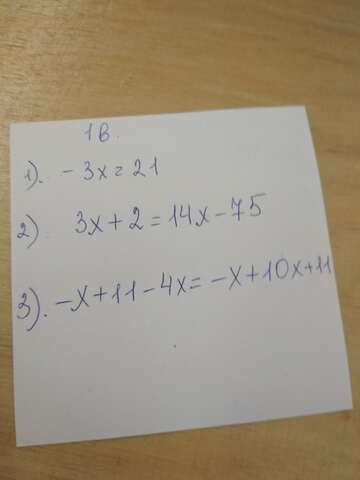 1В.
1). -3x=21
2). 3x+2=14x-75
3). -x+11-4x=-x+10x+11